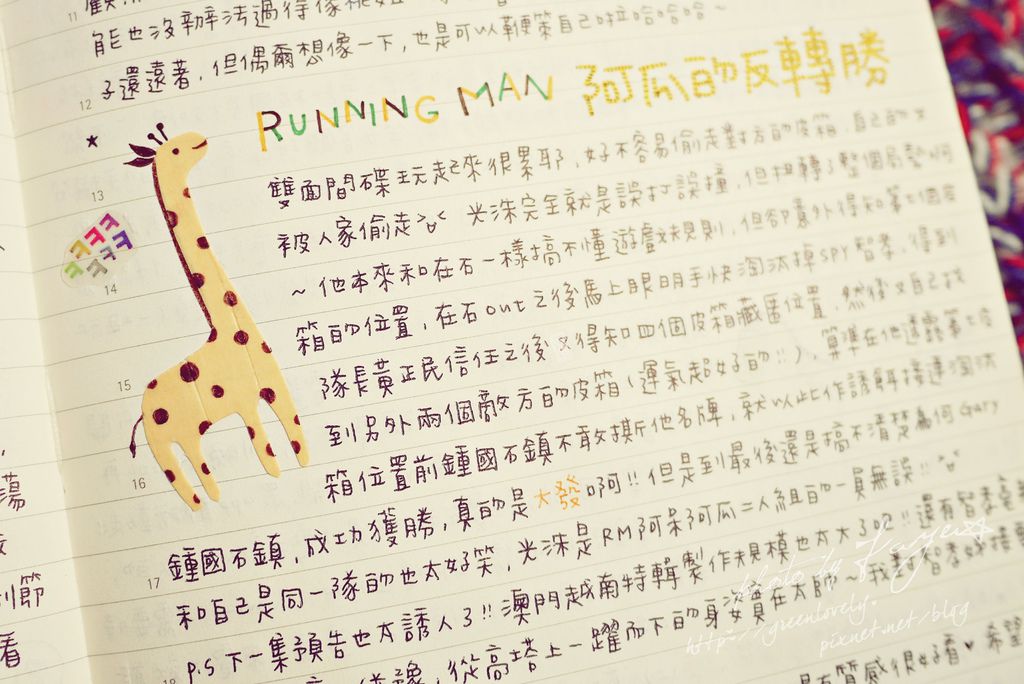 11
能也沒辦法過得像
12 子還遠著，但偶爾想像一下，也是可以鞭策自己啦哈哈哈～
RUNNING MAN 阿瓜的反轉勝
雙面間諜玩起來很累耶，好不容易偷走對方的皮箱，自己的又
13 被人家偷走 光洙完全就是誤打誤撞，但扭轉了整個局勢啊
～他本來和在石一樣搞不懂遊戲規則，但卻意外得知第七個皮
14 箱的位置，在石out之後馬上眼明手快淘汰掉SPY智孝，得到
隊長黃正民信任之後又得知四個皮箱藏匿位置，然後又自己找
15 到另外兩個敵方的皮箱(運氣超好的!!)，算準在他透露第七皮
箱位置前鍾國石鎮不敢撕他名牌，就以此作誘餌接連淘汰
16 鍾國石鎮，成功獲勝，真的是大發啊!!但是到最後還是搞不清楚為何Gary
17 和自己是同一隊的也太好笑，光洙是RM阿呆阿瓜二人組的一員無誤!!
P.S 下一集預告也太誘人了!!澳門越南特輯製作規模也太大了吧!!還有智孝
18 從高塔上一躍而下的身姿實在太帥～我對智孝
有質感很好看♥希望
蕩
刂節
着
photo by Kayen
http://greenlovely.
pixnet.net/blog